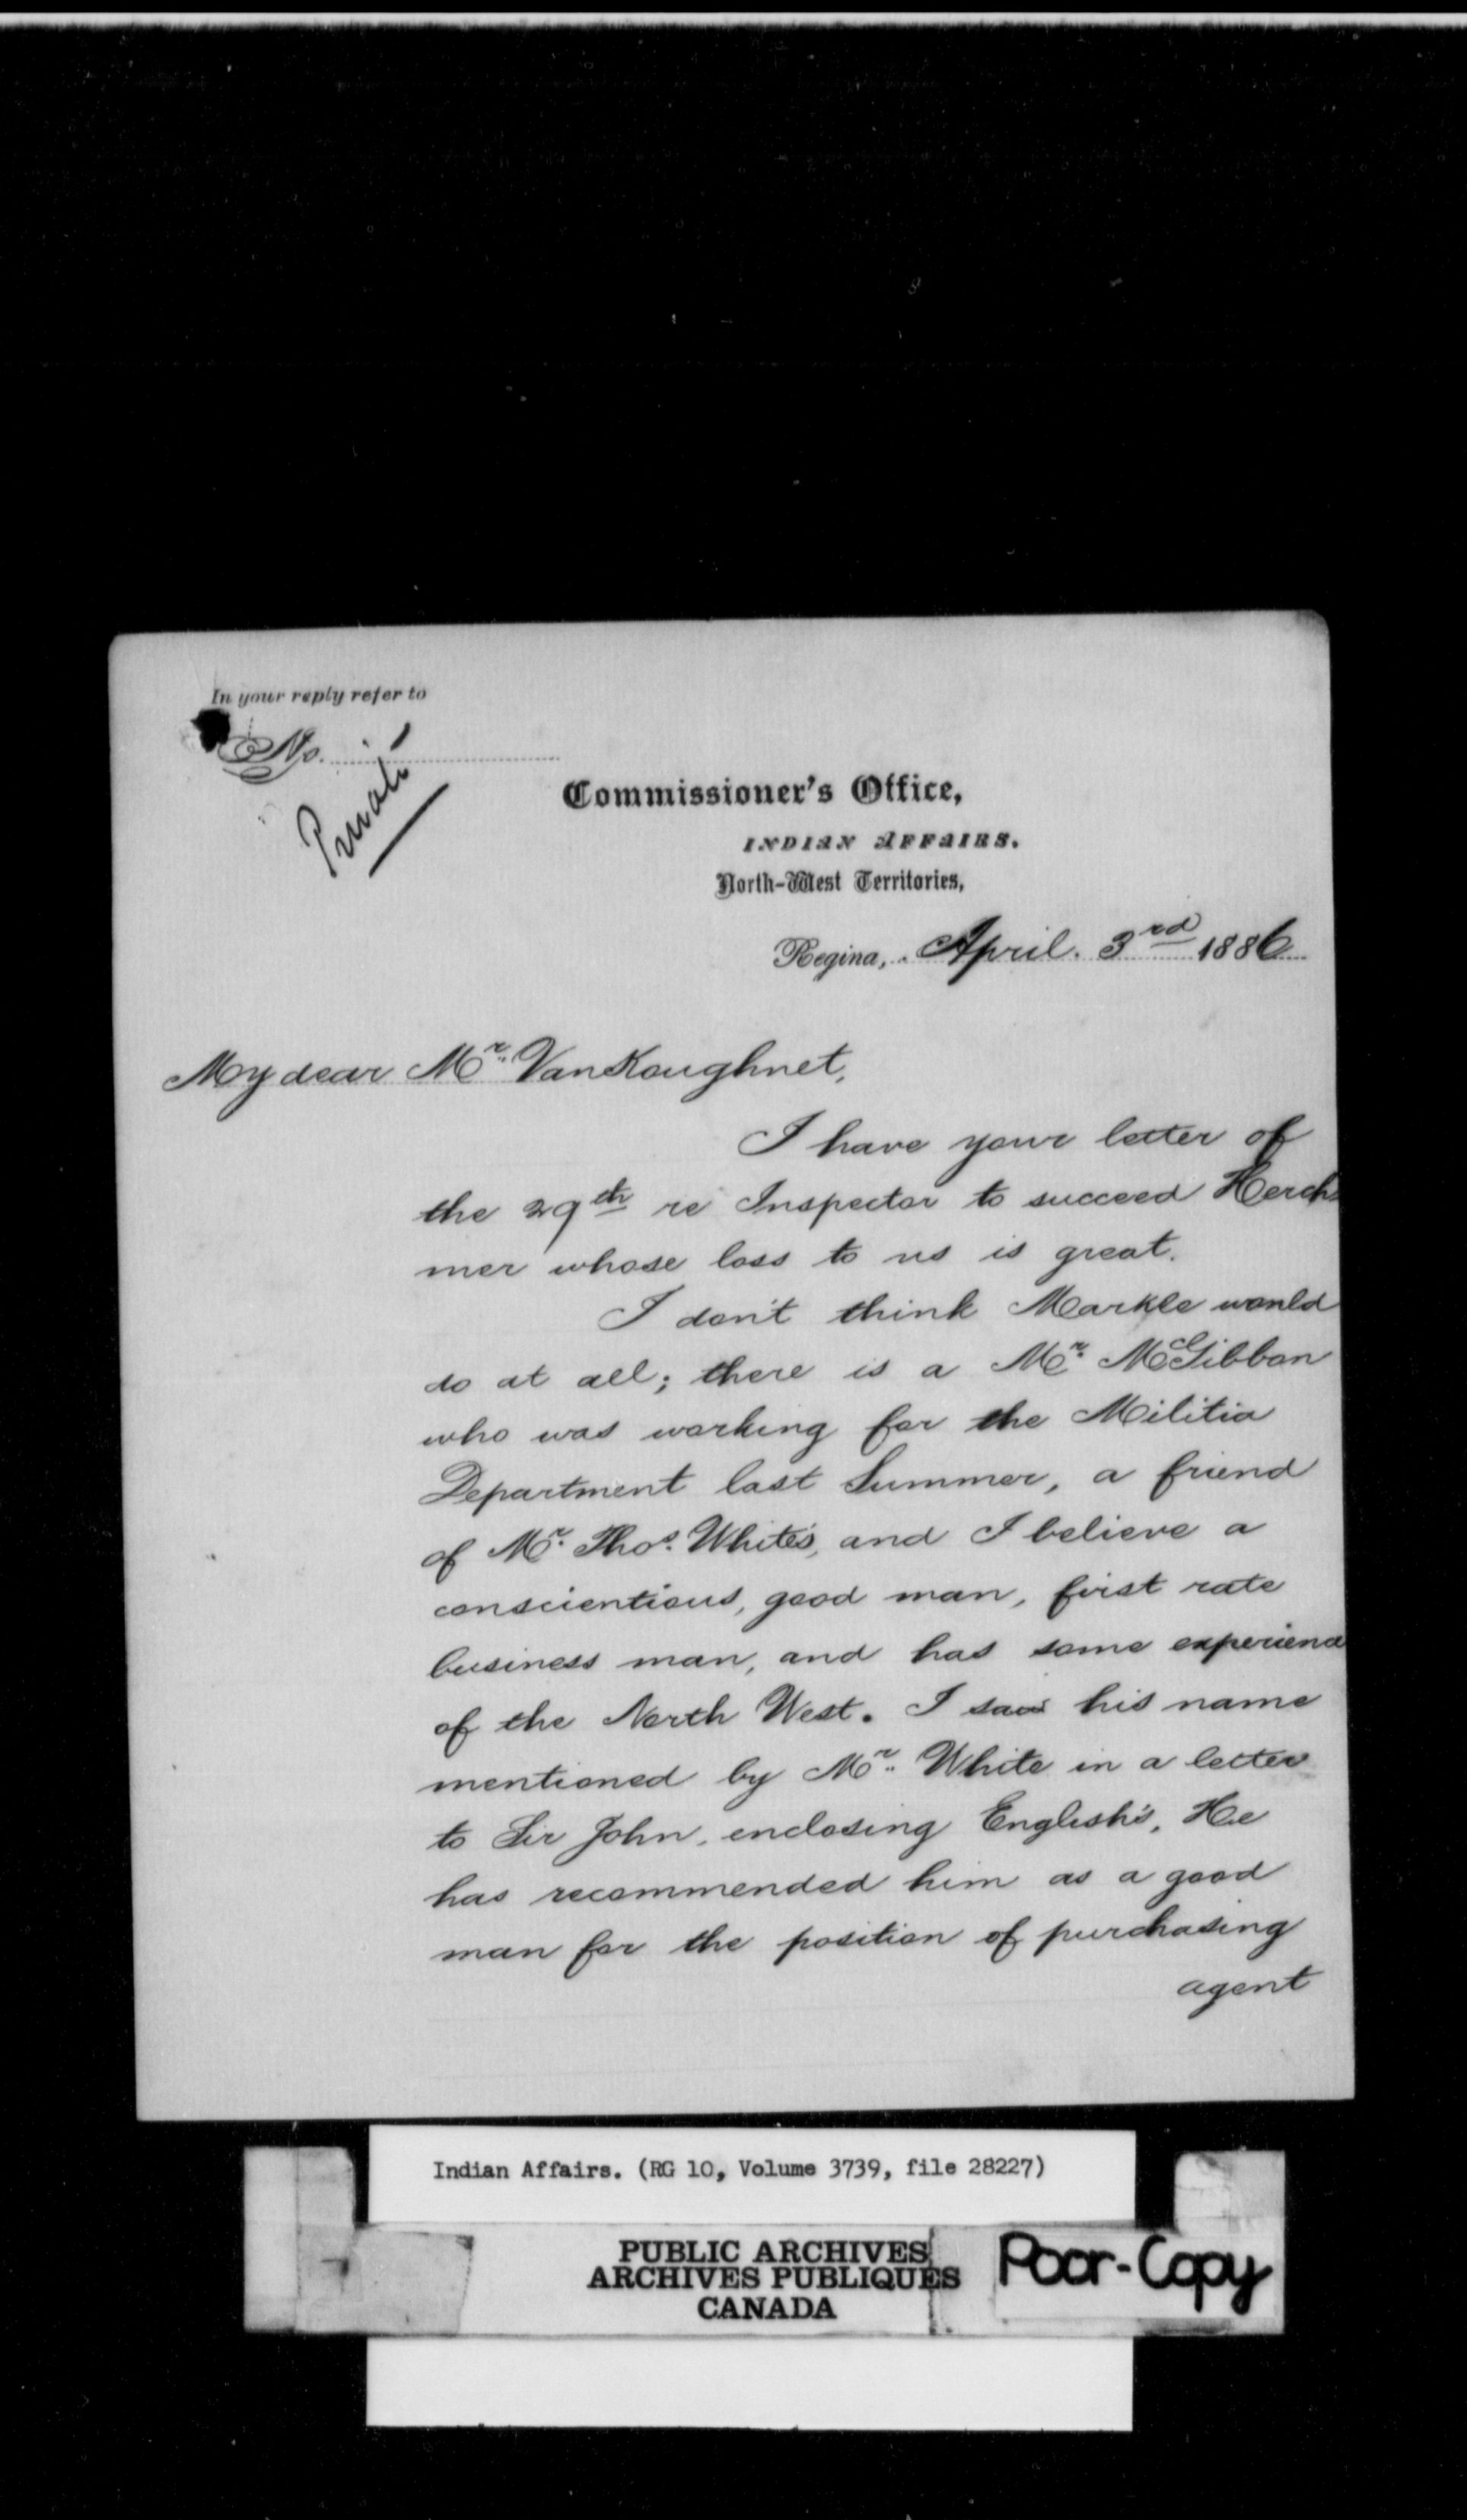 In your reply refer to
No.
Private
Commissioner's Office,
INDIAN AFFAIRS.
North-West Territories,
Regina, April. 3rd 1886
My dear Mr. VanKoughnet,
I have your letter of
the 29th re Inspector to succeed Herch-
mer whose loss to us is great.
I don't think Markle would
do at all; there is a Mr. McGibbon
who was working for the Militia
Department last Summer, a friend
of Mr. Thos. White's, and I believe a
conscientious, good man, first rate
business man, and has some experience
of the North West. I saw his name
mentioned by Mr. White in a letter
to Sir John, enclosing English's, He
has recommended him as a good
man for the position of purchasing
agent
Indian Affairs. (RG 10, Volume 3739, file 28227)
PUBLIC ARCHIVES
ARCHIVES PUBLIQUES
CANADA
Poor-Copy